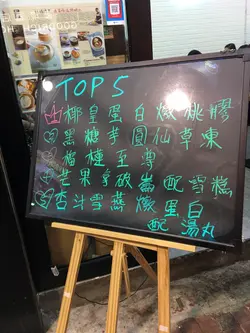 TOP 5
椰皇蛋白燉桃膠
黑糖芋圓仙草凍
榴槤至尊
芒果拿破崙配雪糕
杏汁雪燕燉蛋白
配湯丸